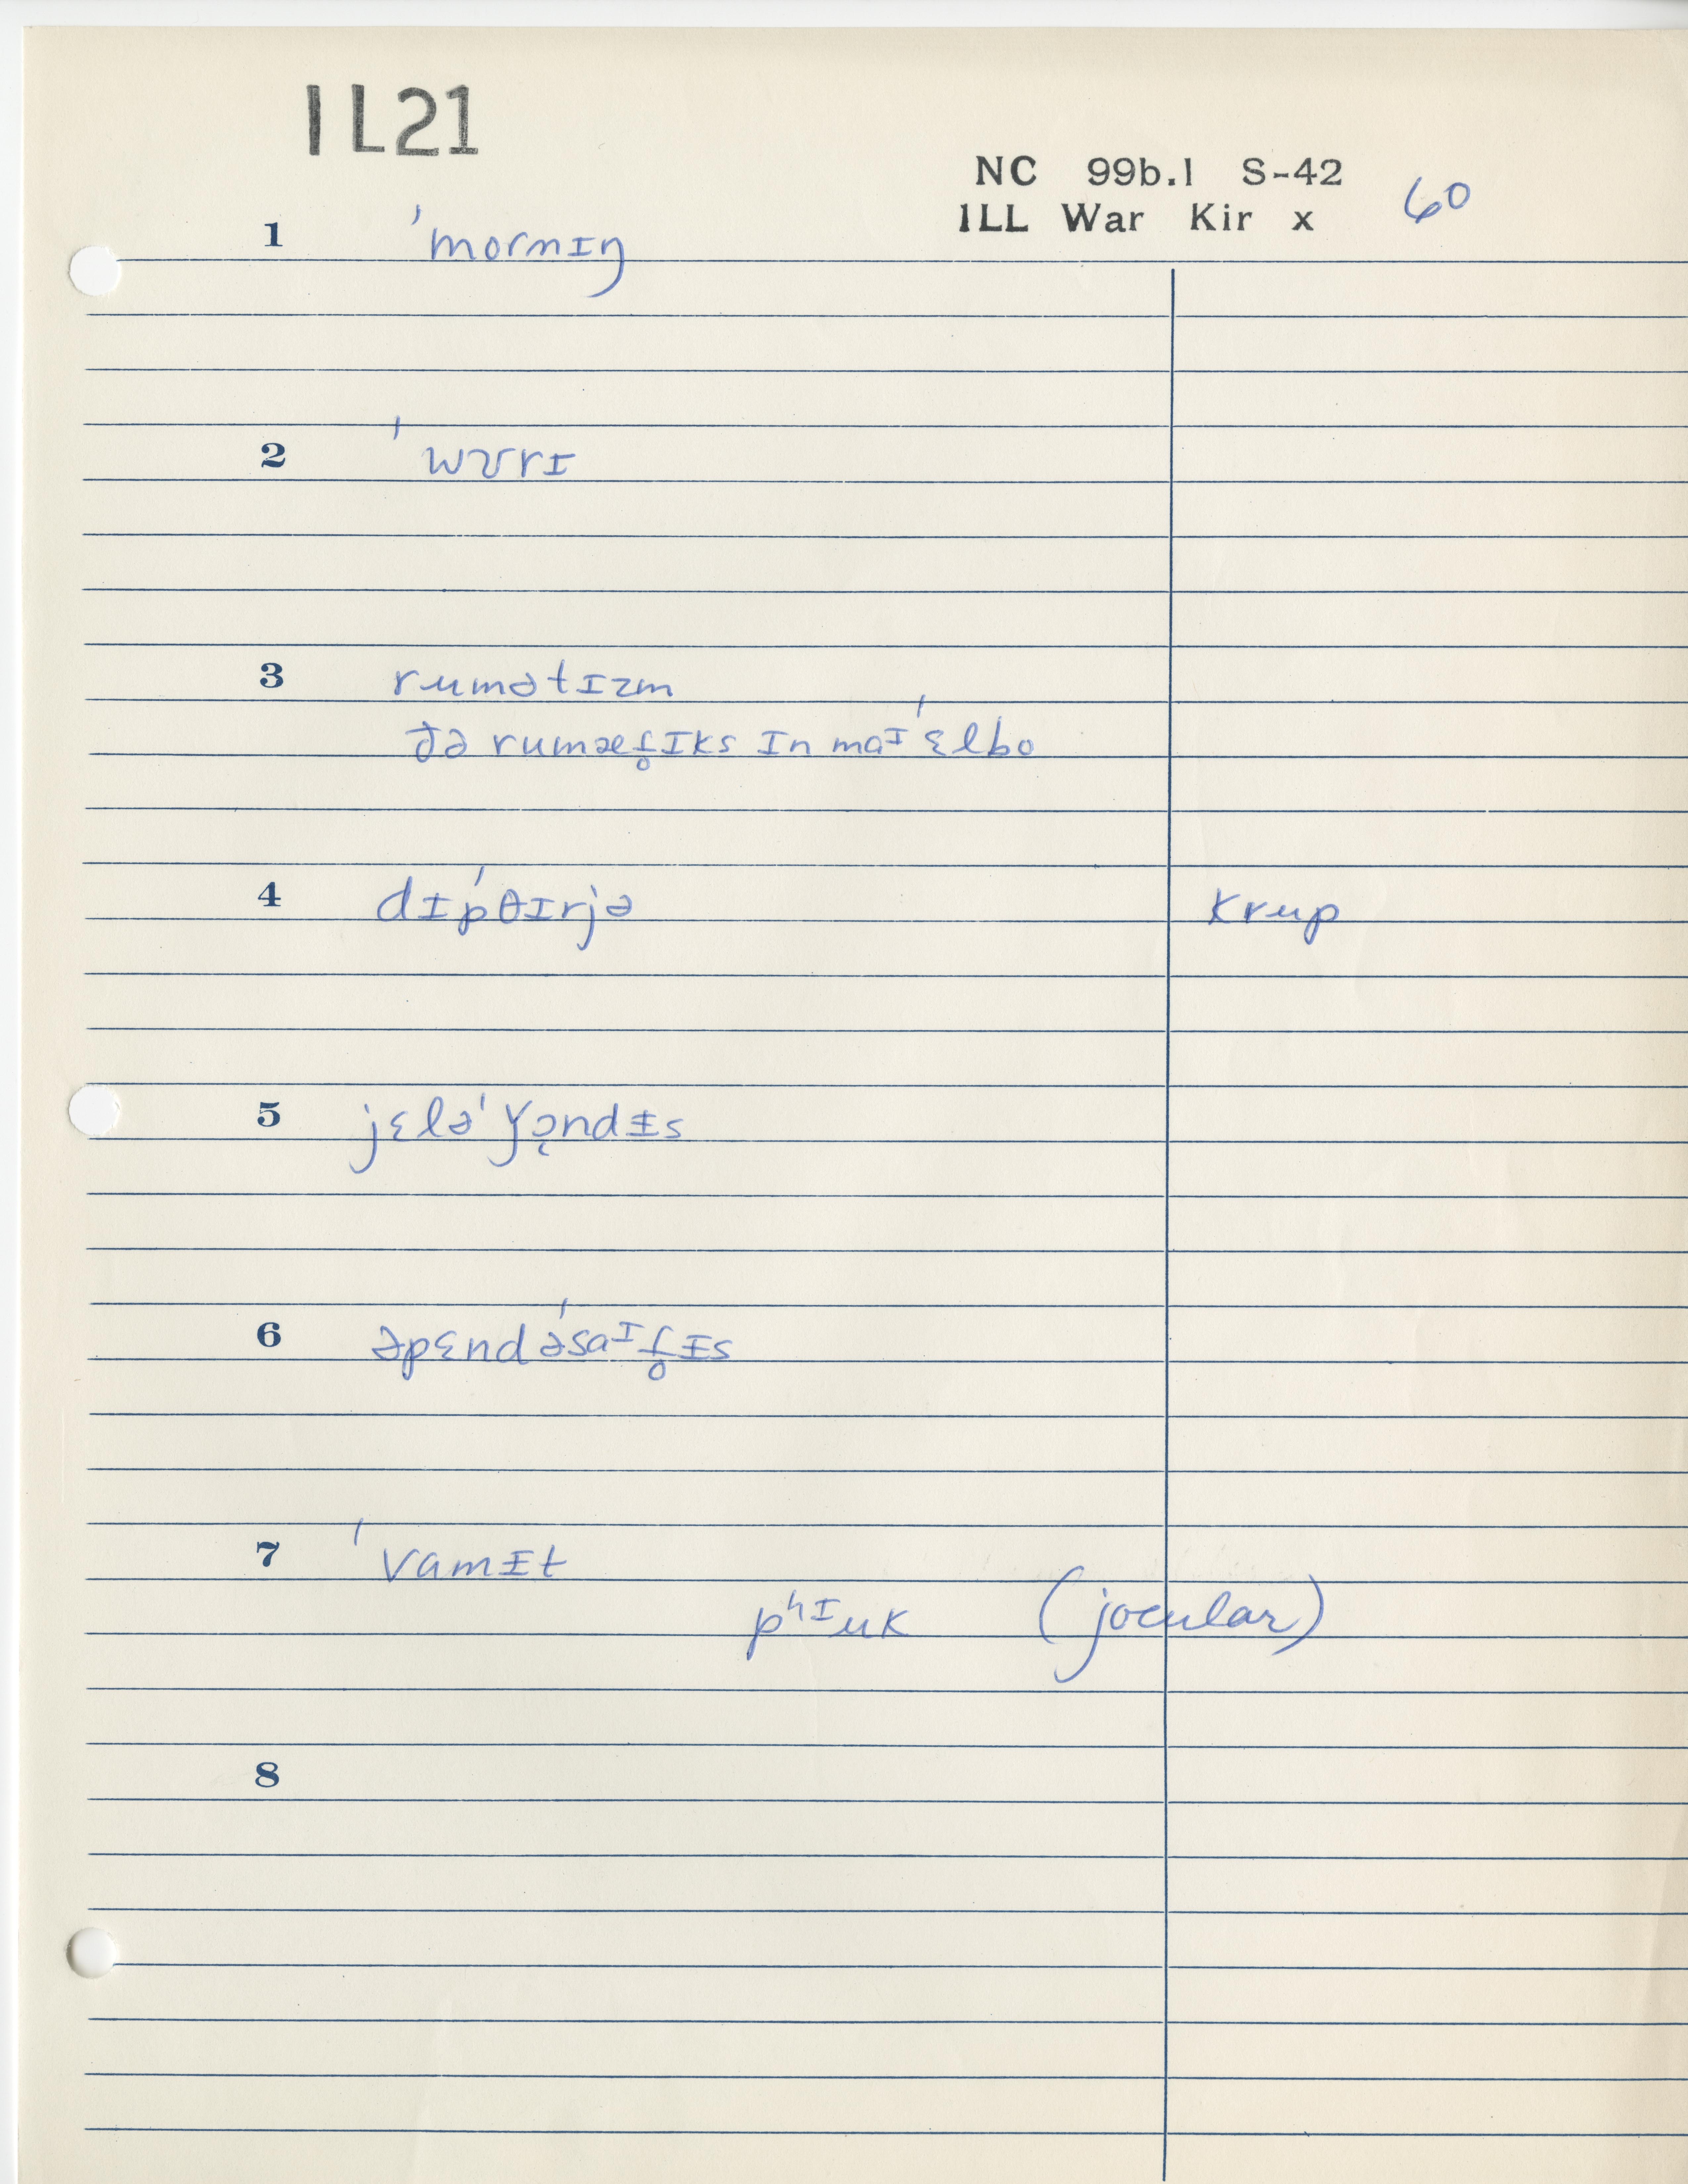 IL21
NC 99b.1 S-42
ILL War Kir x 60
1 ˈmornɪŋ
2 ˈwʊrɪ
3 rumətɪzm
ðə rumæt̬̥ɪks ɪn maɪ ˈɛlbo
4 dɪpˈθɪrjə krup
5 jɛləˈǰɔndɨs
6 əpɛndəˈsaɪt̬̥ɨs
7 ˈvamɨt
pʰɪuk (jocular)
8